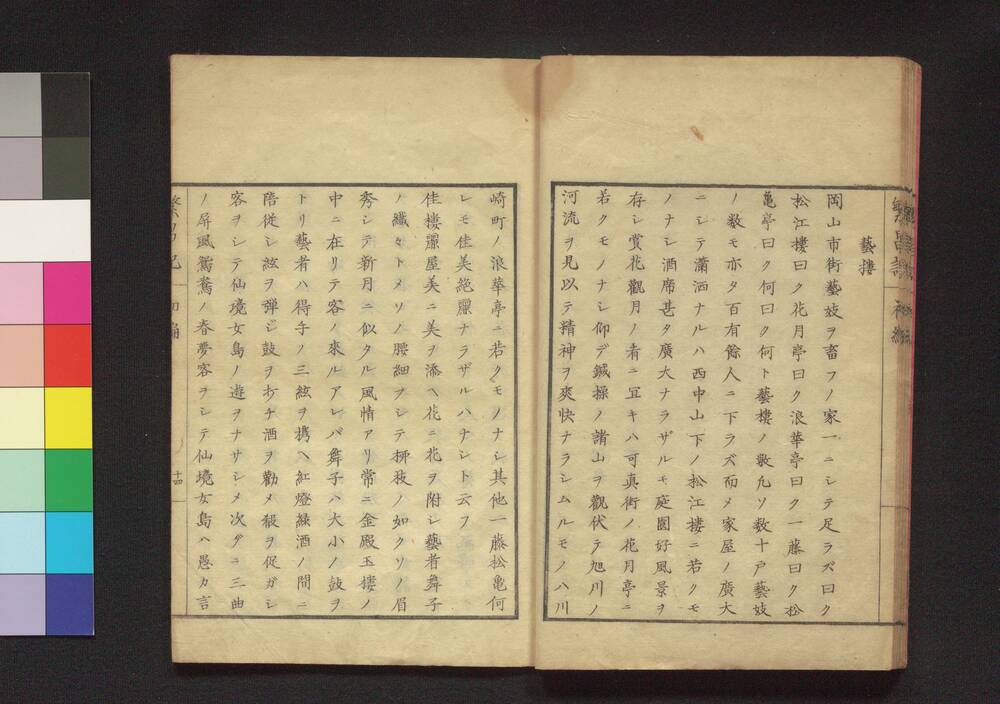 繁昌記 初編
藝樓
岡山市街藝妓ヲ畜フノ家一ニシテ足ラズ曰ク
松江樓曰ク花月亭曰ク浪華亭曰ク一藤曰ク松
亀亭曰ク何曰ク何ト藝樓ノ數九ソ数十戸藝妓
ノ数モ亦タ百有餘人ニ下ラズ而メ家屋ノ廣大
ニシテ瀟洒ナルハ西中山下ノ松江樓ニ若クモ
ノナシ酒席甚タ廣大ナラザルモ庭園好風景ヲ
存シ賞花觀月ノ者ニ宜キハ可真街ノ花月亭ニ
若クモノナシ仰デ鍼操ノ諸山ヲ觀伏テ旭川ノ
河流ヲ見以テ精神ヲ爽快ナラシムルモノハ川
崎町ノ浪華亭ニ若クモノナシ其他一藤松亀何
レモ佳美絶䑋ナラザルハナシト云フ
佳樓䑋屋美ニ美ヲ添ヘ花ニ花ヲ附シ藝者舞子
ノ纖々トメソノ腰細フシテ柳枝ノ如クソノ眉
秀シテ新月ニ似タル風情アリ常ニ金殿玉樓ノ
中ニ在リテ客ノ來ルアレバ舞子ハ大小ノ鼓ヲ
トリ藝者ハ得手ノ三絃ヲ携ヘ紅燈緑酒ノ間ニ
陪從シ絃ヲ弾ジ鼓ヲ打チ酒ヲ勸メ殽ヲ促ガシ
客ヲシテ仙境女島ノ遊ヲナサシメ次グニ三曲
ノ屏風鴛鴦ノ春夢客ヲシテ仙境女島ハ愚カ言
繁昌記 初編 十四